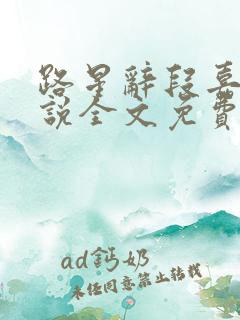 路星辭段嘉
說全文免費
ad鈣奶
未經同意禁止轉載